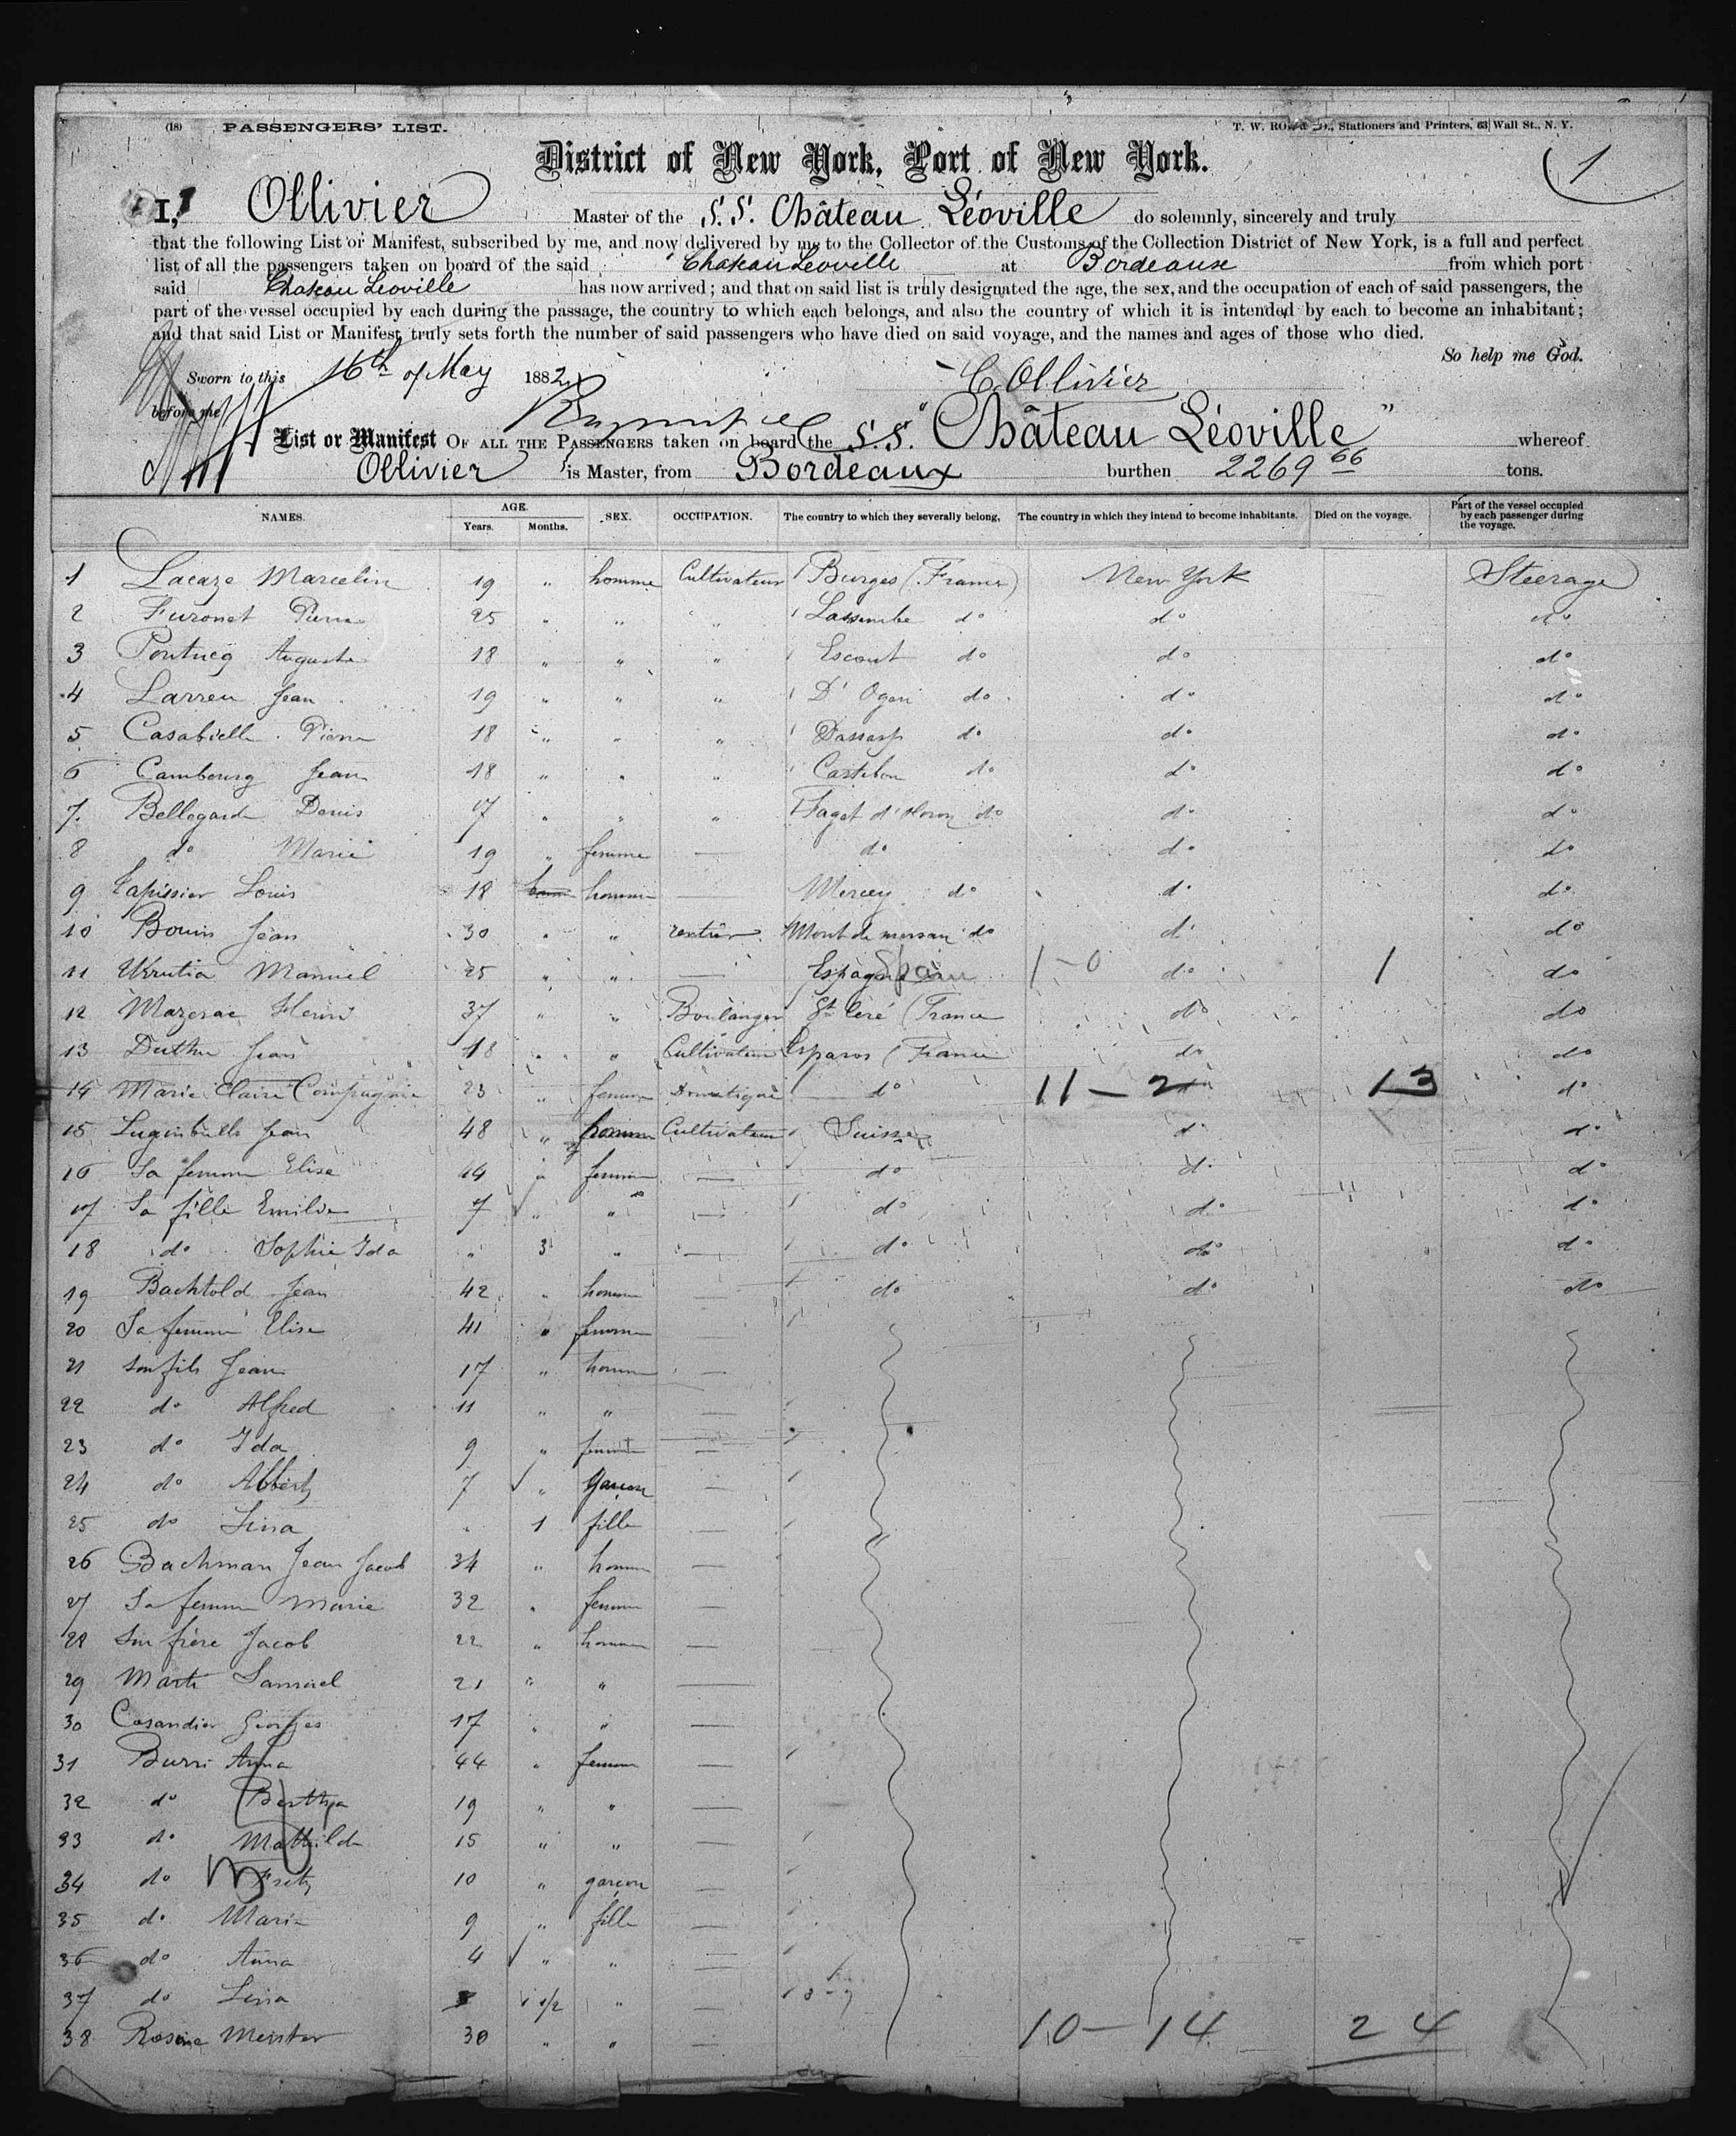 (18) PASSENGERS' LIST.
T. W. ROW & Co., Stationers and Printers, 63 Wall St., N. Y.
District of New York, Port of New York.
1
I, Ollivier Master of the S.S. Château Léoville do solemnly, sincerely and truly
that the following List or Manifest, subscribed by me, and now delivered by me to the Collector of the Customs of the Collection District of New York, is a full and perfect
list of all the passengers taken on board of the said Chateau Leoville at Bordeaux from which port
said Chateau Leoville has now arrived; and that on said list is truly designated the age, the sex, and the occupation of each of said passengers, the
part of the vessel occupied by each during the passage, the country to which each belongs, and also the country of which it is intended by each to become an inhabitant;
and that said List or Manifest truly sets forth the number of said passengers who have died on said voyage, and the names and ages of those who died.
So help me God.
Sworn to this 16th of May 1882
C. Ollivier
before me
List or Manifest OF ALL THE PASSENGERS taken on board the S.S. "Château Léoville" whereof
Ollivier is Master, from Bordeaux burthen 2269 66 tons.
NAMES. AGE. Years. Months. SEX. OCCUPATION. The country to which they severally belong, The country in which they intend to become inhabitants. Died on the voyage. Part of the vessel occupied by each passenger during the voyage.
1 Lacaze Marcelin 19 " homme Cultivateur Burges (France) New York Steerage
2 Furonet Pierre 25 " " " do do do
3 Auguste 18 " " " Escout do do do
4 Larreu Jean 19 " " " D' Ogen do do do
5 Casabielle Pierre 18 " " " do do do
6 Cambourg Jean 18 " " " do do do
7 Bellegarde Denis 17 " " " Faget d'Oloron do do do
8 do Marie 19 " femme — do do do
9 Tapissier Louis 18 homme — Mercey do do do
10 Bouin Jean 30 " " rentier Mont de marsan do do do
11 Urrutia Manuel 25 " " — Espagne Spain 1-0 do 1 do
12 Mazerac Henri 37 " " Boulanger St Céré (France do do
13 Duthu Jean 18 " " Cultivateur Esparos (France do do
14 Marie Claire Compagnie 23 " femme Domestique do 11-2 do 13 do
15 Luginbuhl Jean 48 " homme Cultivateur Suisse do do
16 Sa femme Elise 44 " femme — do do do
17 Sa fille Emilie 7 " " — do do do
18 do Sophie Ida " 3 " — do do do
19 Bachtold Jean 42 " homme — do do do
20 Sa femme Elise 41 " femme —
21 son fils Jean 17 " homme —
22 do Alfred 11 " " —
23 do Ida 9 " femme —
24 do Albert 7 " garcon —
25 do Lina " 1 fille —
26 Bachman Jean Jacob 34 " homme —
27 Sa femme Marie 32 " femme —
28 Son frère Jacob 22 " homme —
29 Marti Samuel 21 " " —
30 Casandier Georges 17 " " —
31 Burri Anna 44 " femme —
32 do Bertha 19 " " —
33 do Mathilde 15 " " —
34 do Fritz 10 " garcon —
35 do Marie 9 " fille —
36 do Anna 4 " " —
37 do Lina 1/2 " —
38 Rosina Meister 30 " " — 10-14 24